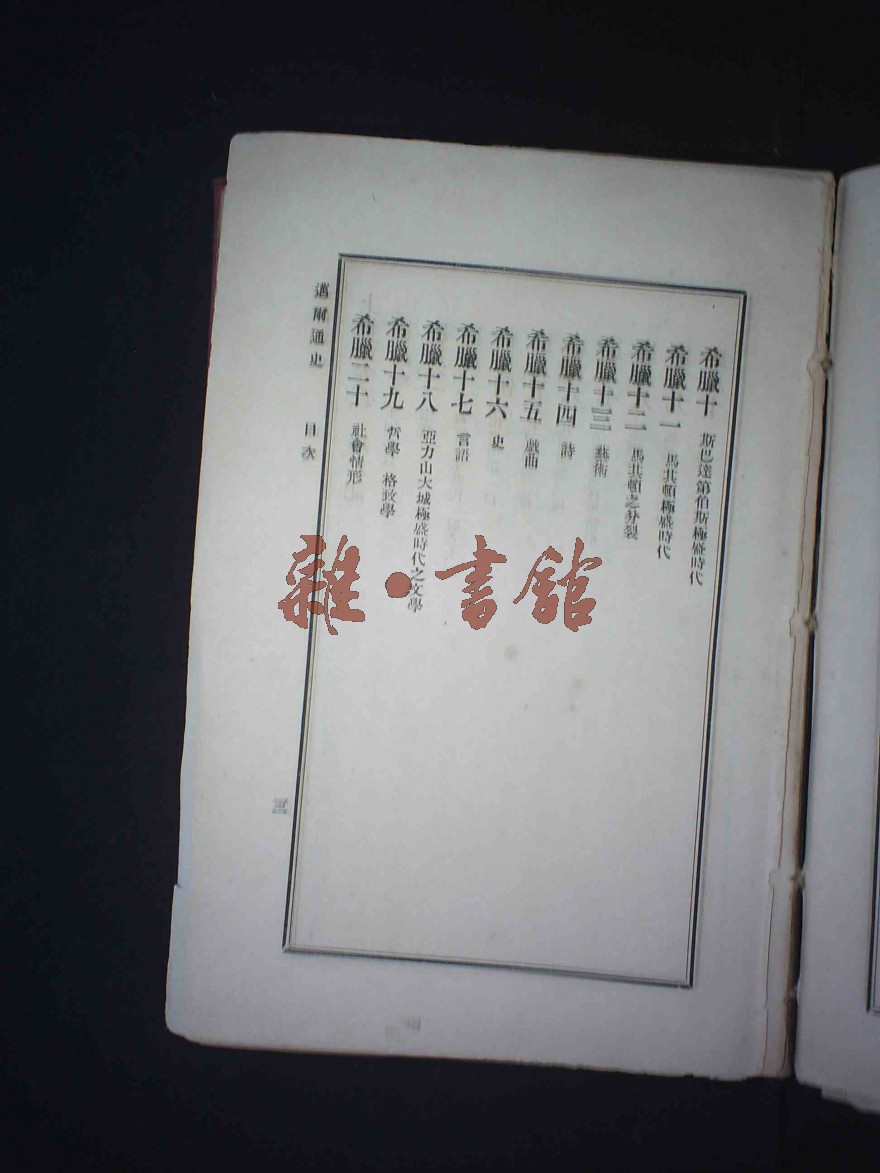 希臘十 斯巴達第伯斯極盛時代
希臘十一 馬其頓極盛時代
希臘十二 馬其頓之分裂
希臘十三 藝術
希臘十四 詩
希臘十五 戲曲
希臘十六 史
希臘十七 言語
希臘十八 亞力山大城極盛時代之文學
希臘十九 哲學 格致學
希臘二十 社會情形
邁爾通史 目次 三
雜·書館